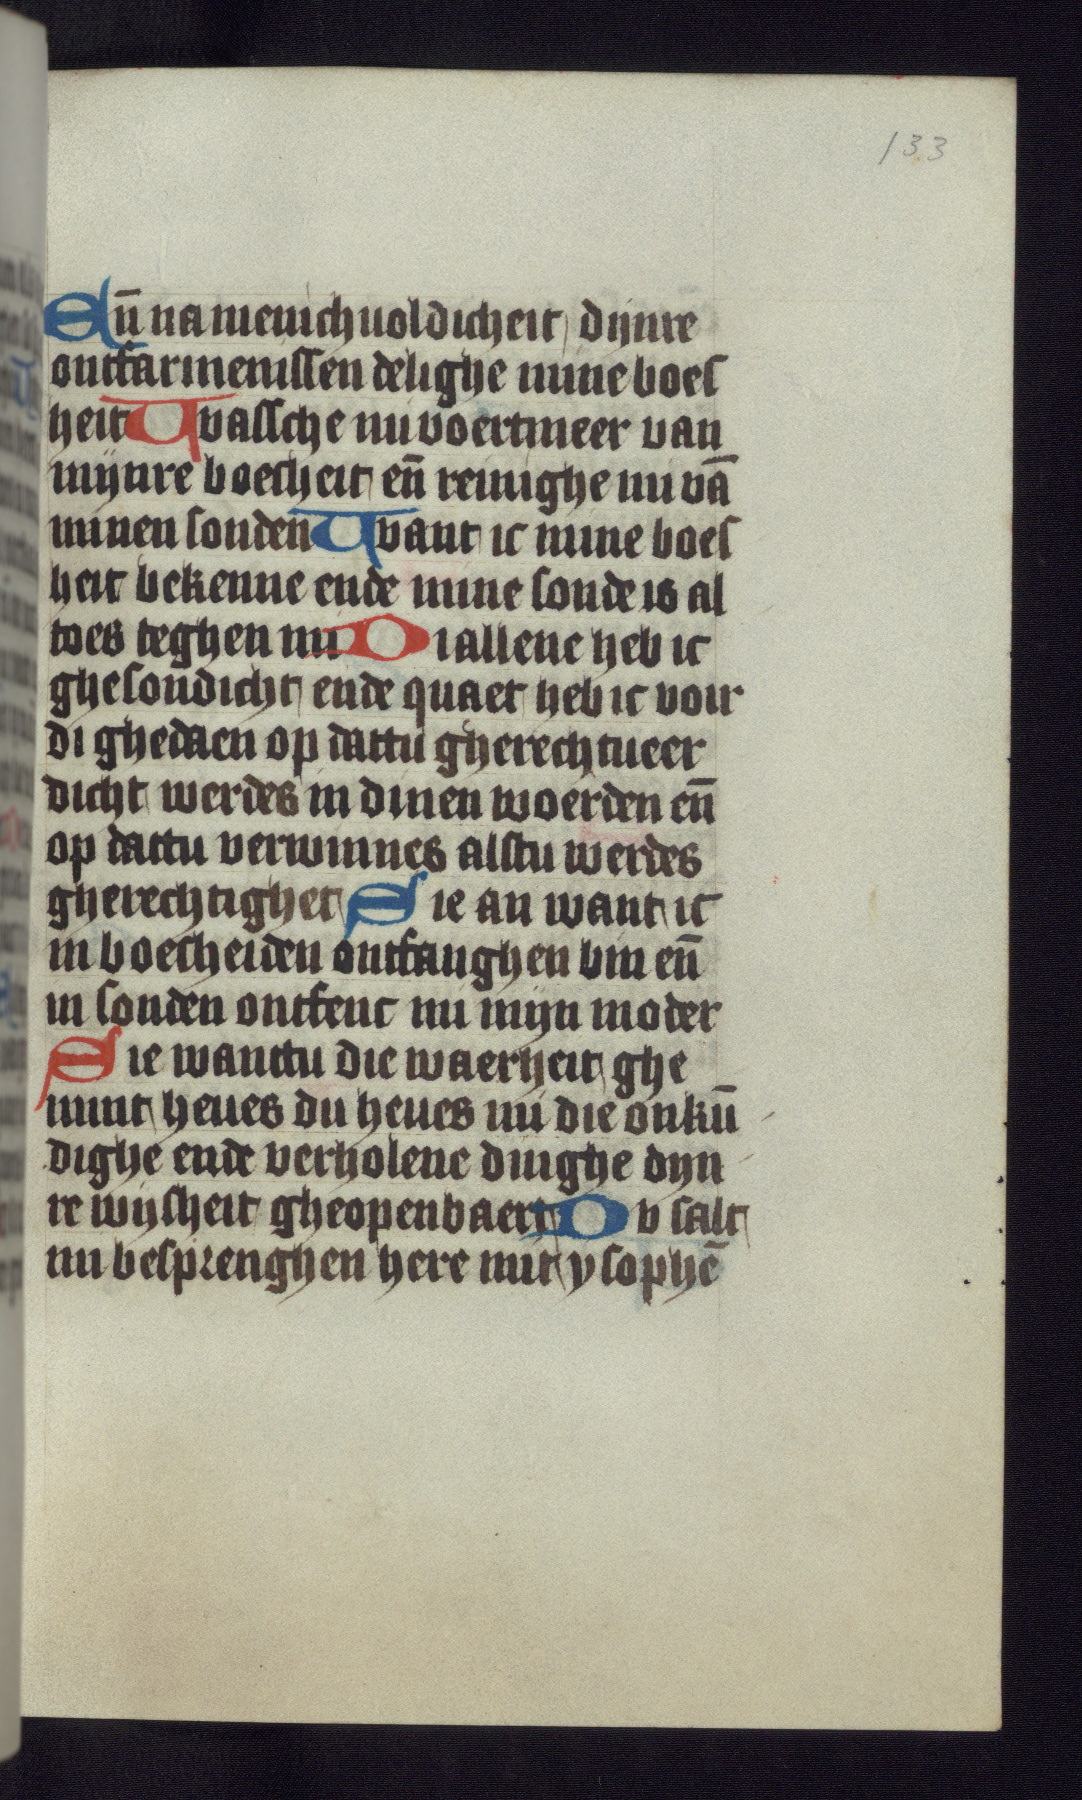 133
Eñ na menichuoldicheit dijnre
ontfarmenissen delighe mine boes
heit Wassche mi voertmeer van
mijnre boesheit eñ reinighe mi vā
minen sonden Want ic mine boes
heit bekenne ende mine sonde is al
toes teghen mi Di allene heb ic
ghesondicht ende quaet heb ic voir
di ghedaen op dattu gherechtueer
dicht werdes in dinen woerden eñ
op dattu verwinnes alstu werdes
gherechtighet Sie an want ic
in boesheiden ontfanghen bin eñ
in sonden ontfenc mi mijn moder
Sie wanttu die waerheit ghe
mint heues du heues mi die onkū
dighe ende verholene dinghe dijn
re wijsheit gheopenbaert Du salt
mi besprenghen here mit ysophē